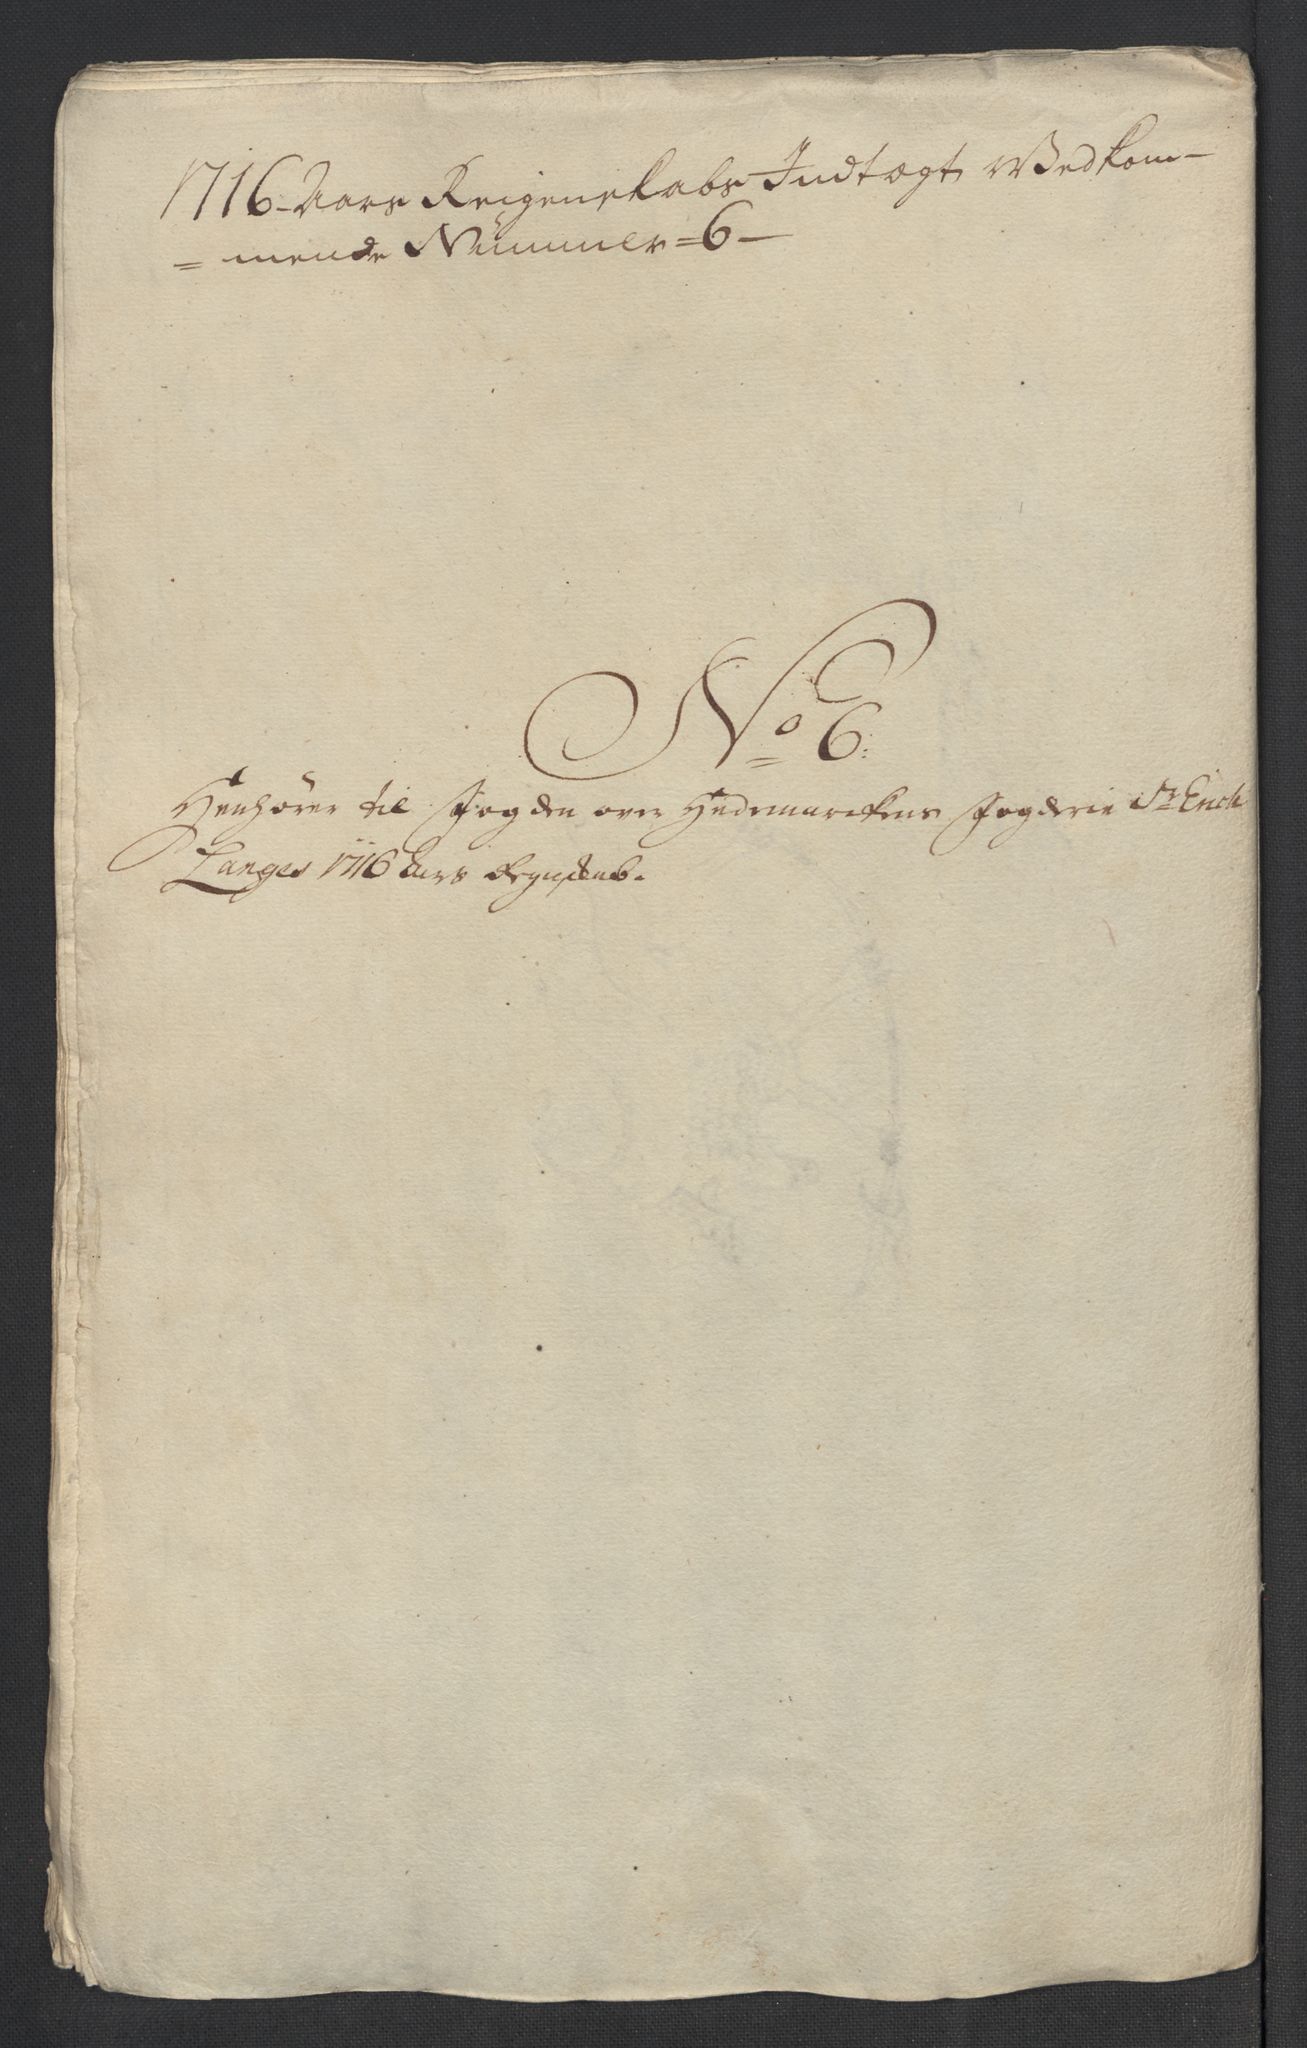 1716 Aars Reigenskabs Indtægt Vedkom-
= mende Nummer =6—
No 6:
Henhører til Fogden over Hedemarckens Fogderie Sr Erich
Langes 1716 Aars Regnskab.